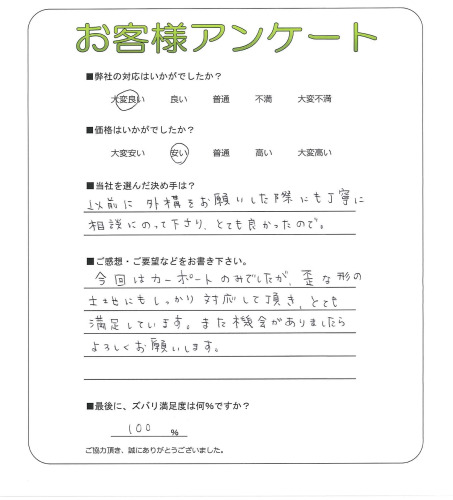 お客様アンケート
■弊社の対応はいかがでしたか？
大変良い 良い 普通 不満 大変不満
■価格はいかがでしたか？
大変安い 安い 普通 高い 大変高い
■当社を選んだ決め手は？
以前に外構をお願いした際にも丁寧に
相談にのって下さり、とても良かったので。
■ご感想・ご要望などをお書き下さい。
今回はカーポートのみでしたが、歪な形の
土地にもしっかり対応して頂き、とても
満足しています。また機会がありましたら
よろしくお願いします。
■最後に、ズバリ満足度は何％ですか？
100 ％
ご協力頂き、誠にありがとうございました。